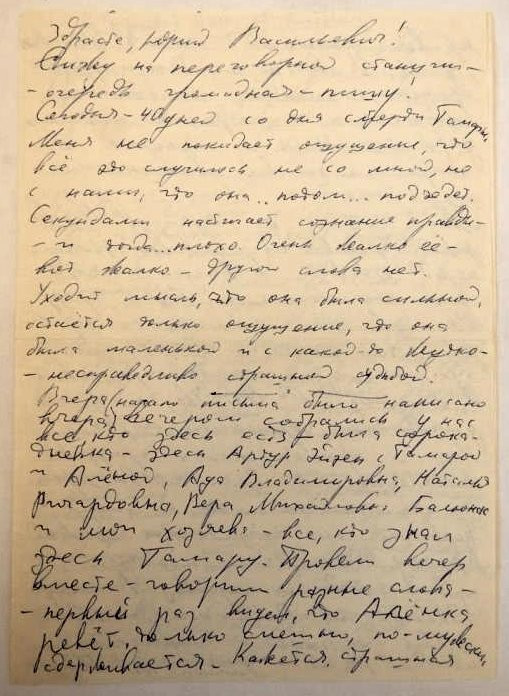 Здрасте, Юрий Васильевич!
Сижу на переговорной станции –
– очередь громадная – пишу!
Сегодня – 40 дней со дня смерти Тамары.
Меня не покидает ощущение, что
всё это случилось не со мной, не
с нами, что она.. потом... подъедет.
Секундами настигает сознание правды –
– и тогда... плохо. Очень жалко её –
вот жалко – других слова нет.
Уходит мысль, что она была сильной,
остаётся только ощущение, что она
была маленькой и с какой-то жутко-
– несправедливо страшной судьбой.
Вчера (начало письма было написано
вчера) вечером собрались у нас
все, кто здесь есть – была сорока-
дневка – здесь Артур Эйзен с Тамарой
и Алёной, Ада Владимировна, Наталья
Ричардовна, Вера Михайловна
и мои хозяева – все, кто знал
здесь Тамару. Провели вечер
вместе – говорили разные слова –
– первый раз видел, что Алёнка
ревёт, только смешно, по-мужски,
сдерживается – Кажется, страшная